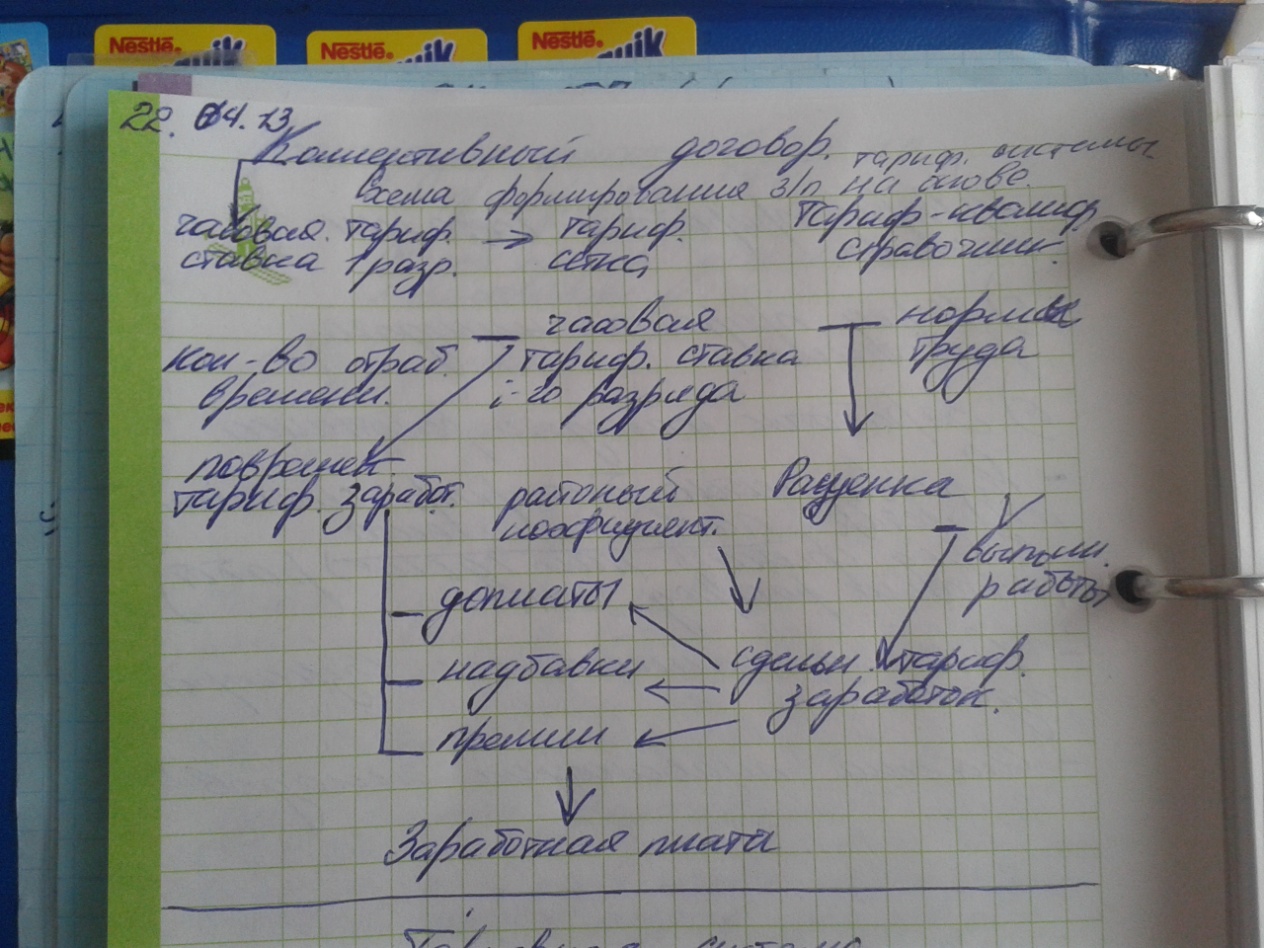 Nestlé.
Nestlé.
Nestlé.
22. 04.13
Коллективный договор.
Схема формирования з/п на основе тариф. системы
часовая тариф. → тариф. тариф-квалиф.
ставка 1 разр. сетка справочник.
часовая нормы
кол-во отраб. тариф. ставка труда
времени. i-го разряда
повремен.
тариф. заработ. районый Расценка
коэфициент.
V
выполн.
работы
доплаты
надбавки сдельн. тариф.
заработок.
премии
Заработная плата
система